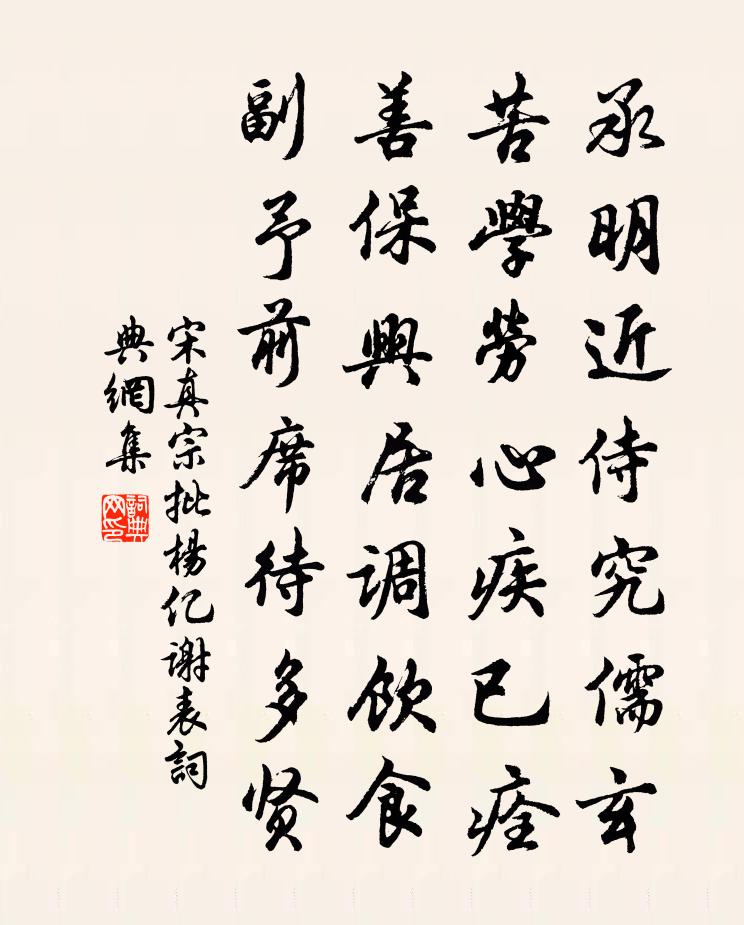 承明近侍究儒玄
苦學勞心疾已痊
善保興居调飲食
副予前席待多贤
宋真宗批楊亿謝表詞
典網集
詞典網印